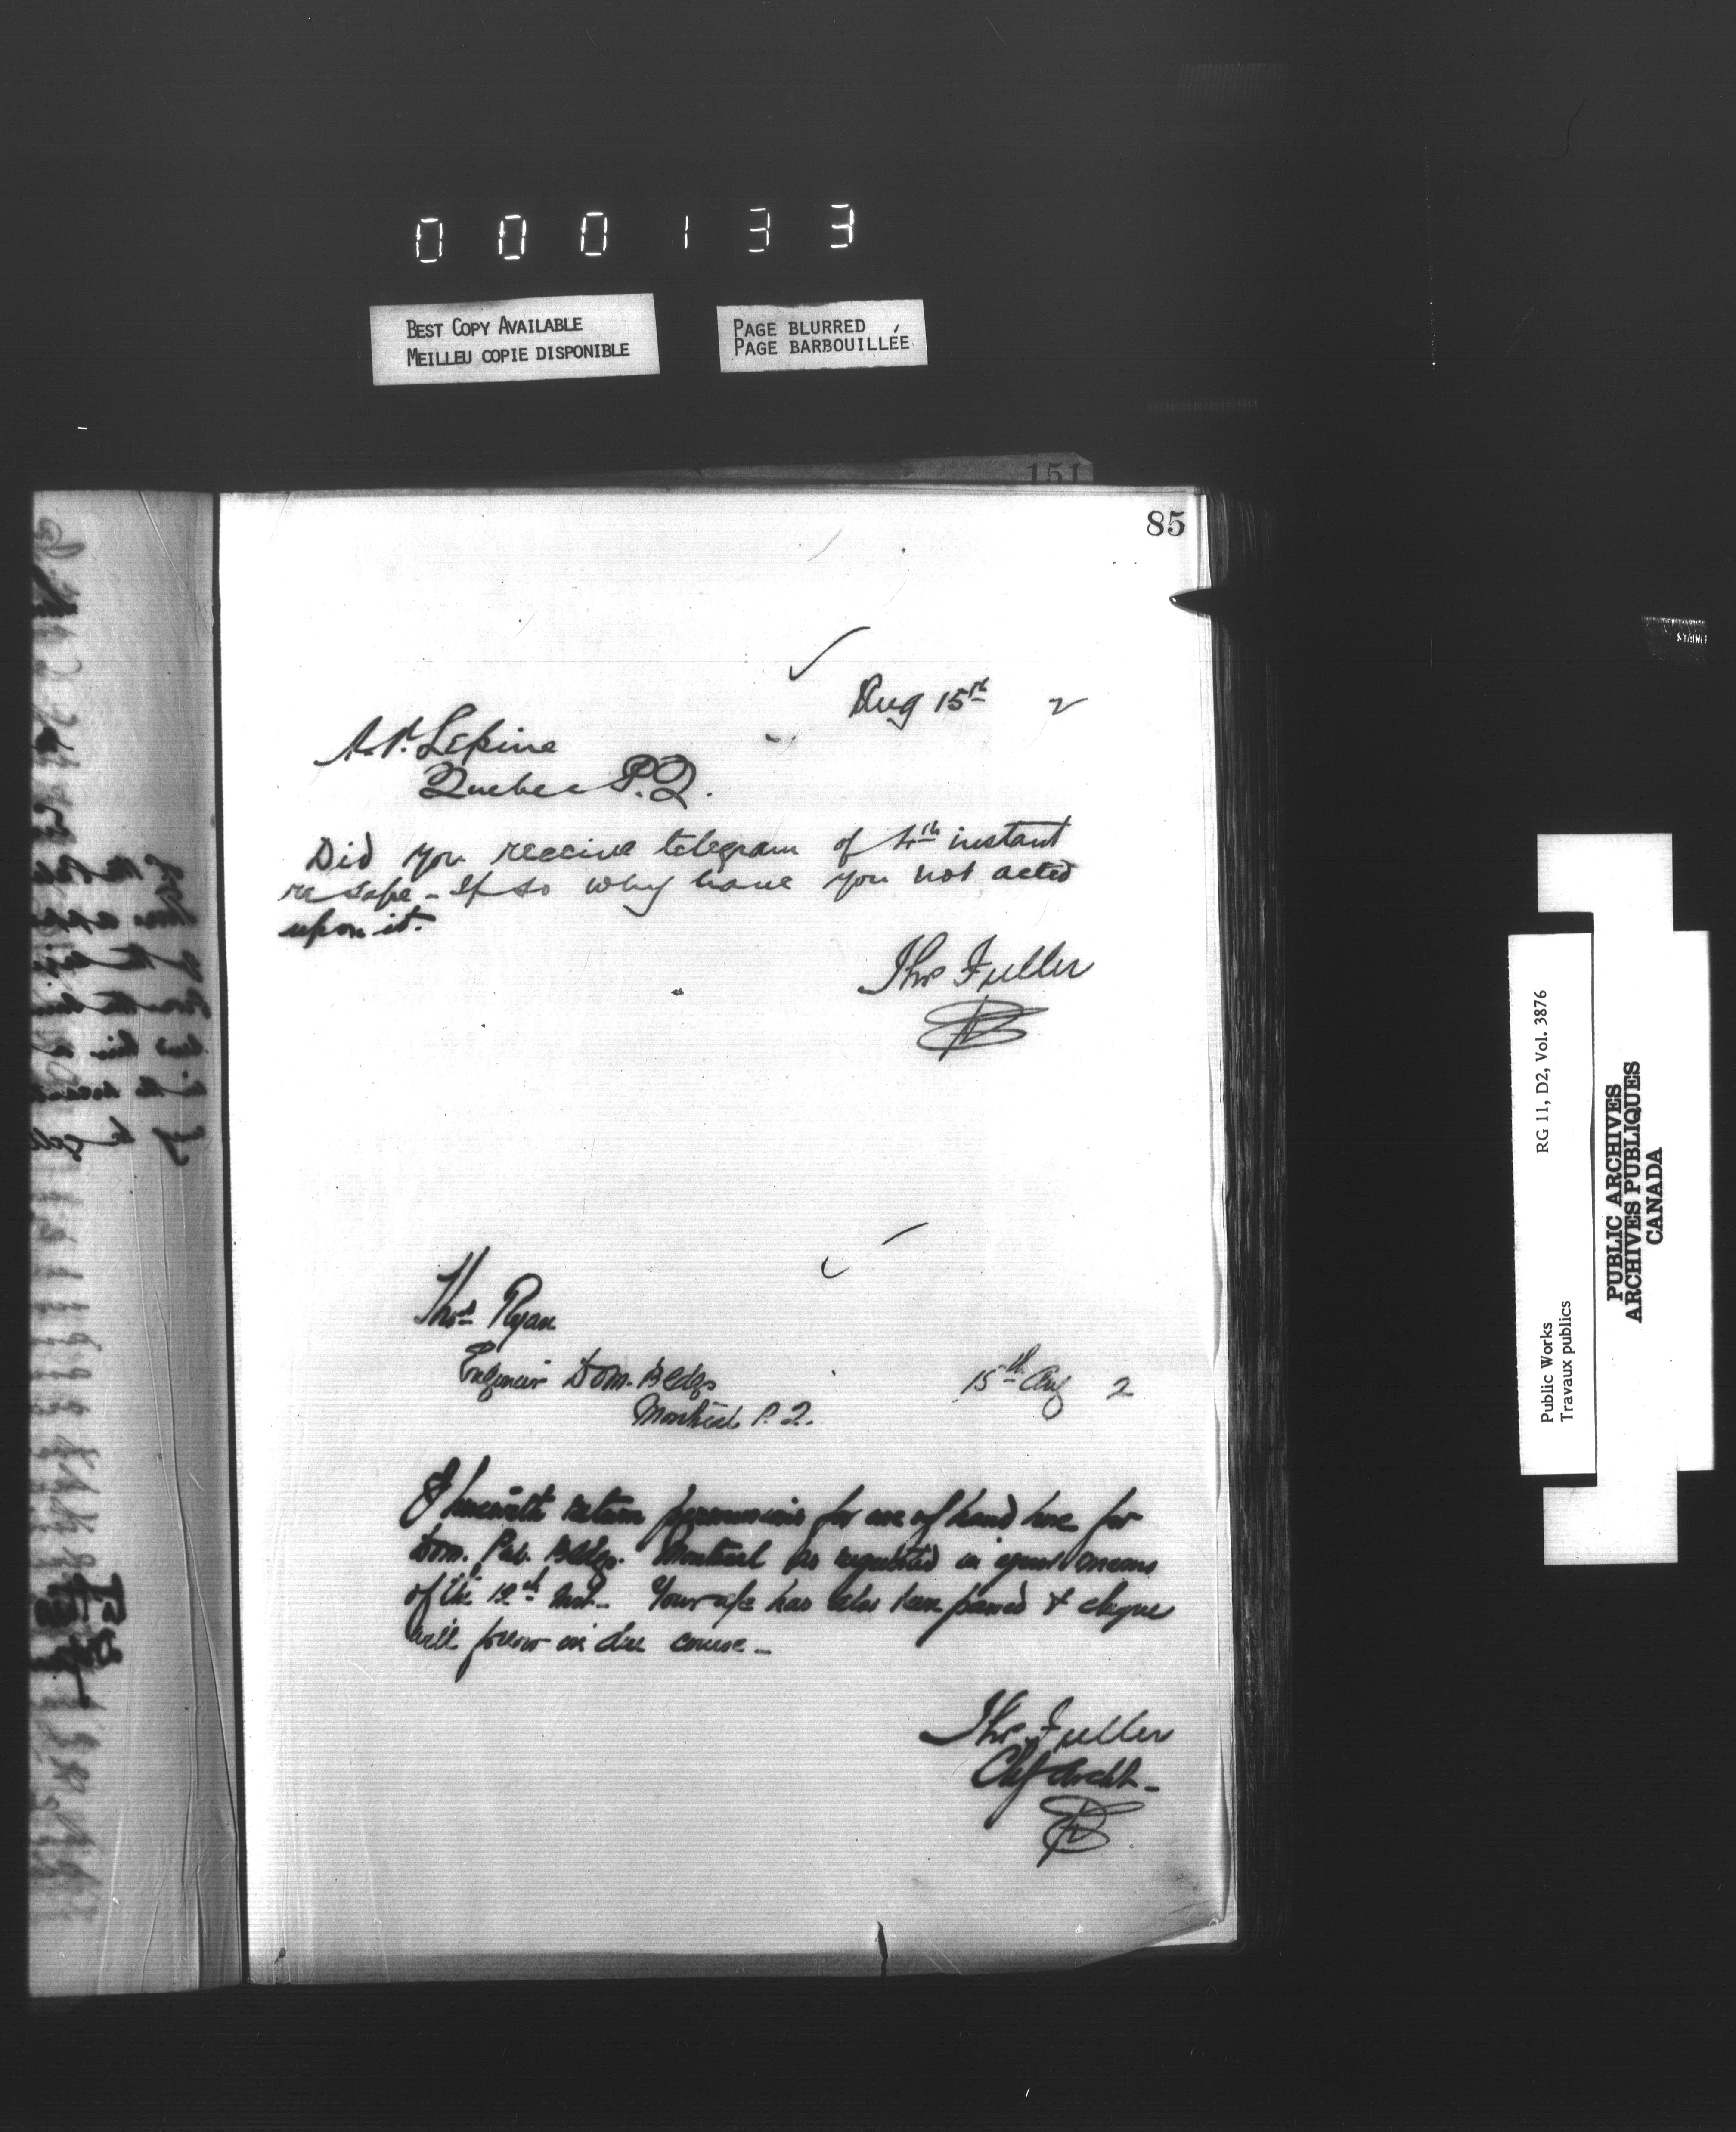 000133
BEST COPY AVAILABLE
MEILLEU COPIE DISPONIBLE
PAGE BLURRED
PAGE BARBOUILLÉE
151
85
Aug 15th 2
A.P. Lepine
Quebec P.Q.
Did you receive telegram of 4th instant
re safe - If so why have you not acted
upon it.
Thos Fuller
Thos Ryan
Engineer Dom. Bldgs
Montreal P.Q.
15th Aug 2
I herewith return permission for use of hand hose for
Dom. Pub. Bldgs. Montreal as requested in your memo
of the 12th Inst. Your a/c has also been passed & cheque
will follow in due course -
Thos Fuller
Chf Archt -
RG 11, D2, Vol. 3876
Public Works
Travaux publics
PUBLIC ARCHIVES
ARCHIVES PUBLIQUES
CANADA